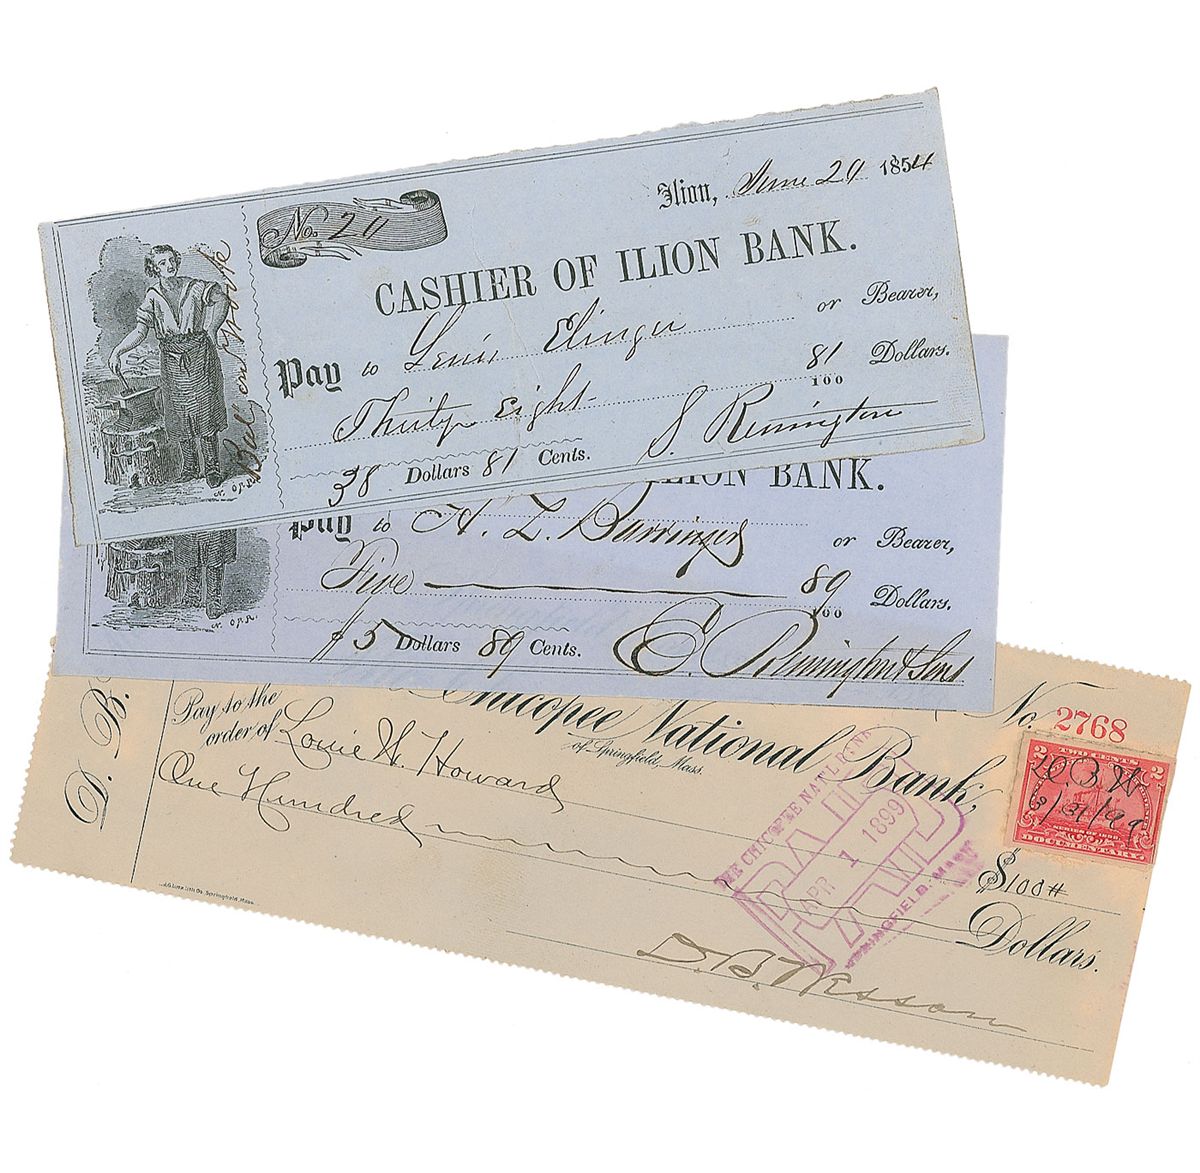 Ilion, June 29 1854
No. 20
CASHIER OF ILION BANK.
Pay to Lewis Elinger or Bearer,
Thirty Eight 81/100 Dollars.
38 Dollars 81 Cents. S. Remington
Bal on
N. ORR
ILION BANK.
Pay to A. L. Barringer or Bearer,
Five 89/100 Dollars.
$5 Dollars 89 Cents. E. Remington & Sons
N. ORR
D. B.
Chicopee National Bank,
of Springfield, Mass.
No. 2768
Pay to the
order of Louie W. Howard $100#
One Hundred Dollars.
D. B. Wesson
THE CHICOPEE NAT'L BANK
PAID
APR 1 1899
SPRINGFIELD, MASS.
2 TWO CENTS 2
D.B.W
3/31/99
SERIES OF 1898
DOCUMENTARY
Litho. Co. Springfield, Mass.